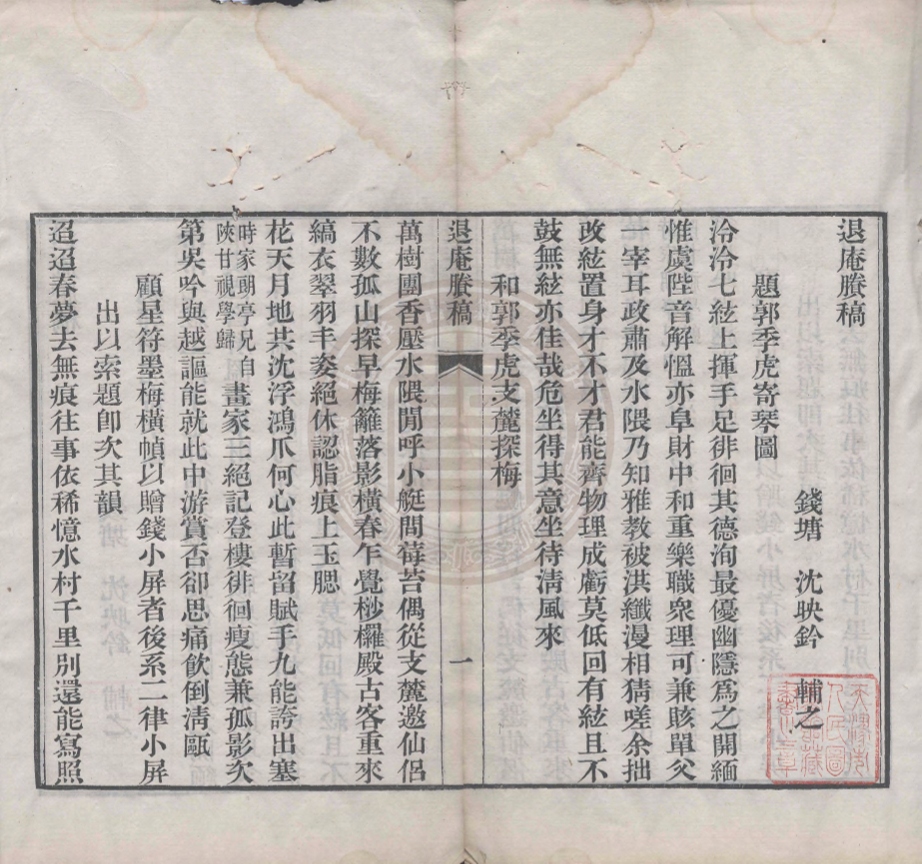 退庵賸稿
錢塘 沈映鈐 輔之
題郭季虎寄琴圖
泠泠七絃上揮手足徘徊其德洵最優幽隱爲之開緬
惟虞陛音解慍亦阜財中和重樂職衆理可兼賅單父
一宰耳政肅及水隈乃知雅教被洪纖漫相猜嗟余拙
改絃置身才不才君能齊物理成虧莫低回有絃且不
鼓無絃亦佳哉危坐得其意坐待清風來
和郭季虎支麓探梅
退庵賸稿 一
萬樹團香壓水隈閒呼小艇問莓苔偶從支麓邀仙侶
不數孤山探早梅籬落影橫春乍覺桫欏殿古客重來
縞衣翠羽丰姿絕休認脂痕上玉腮
花天月地共沈浮鴻爪何心此暫留賦手九能誇出塞
時家朗亭兄自
陝甘視學歸
畫家三絕記登樓徘徊瘦態兼孤影次
第吳吟與越謳能就此中游賞否卻思痛飲倒清甌
顧星符墨梅橫幀以贈錢小屏者後系二律小屏
出以索題卽次其韻
迢迢春夢去無痕往事依稀憶水村千里別還能寫照
天津市
人民圖
書館藏
書之章